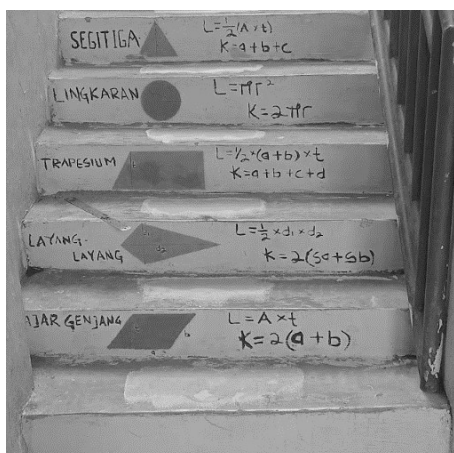 SEGITIGA
L=½(A×t)
K=a+b+c
LINGKARAN
L=πr²
K=2πr
TRAPESIUM
L=½×(a+b)×t
K=a+b+c+d
LAYANG-
LAYANG
d₁
d₂
L=½×d₁×d₂
K=2(sa+sb)
AJAR GENJANG
a
b
L=A×t
K=2(a+b)